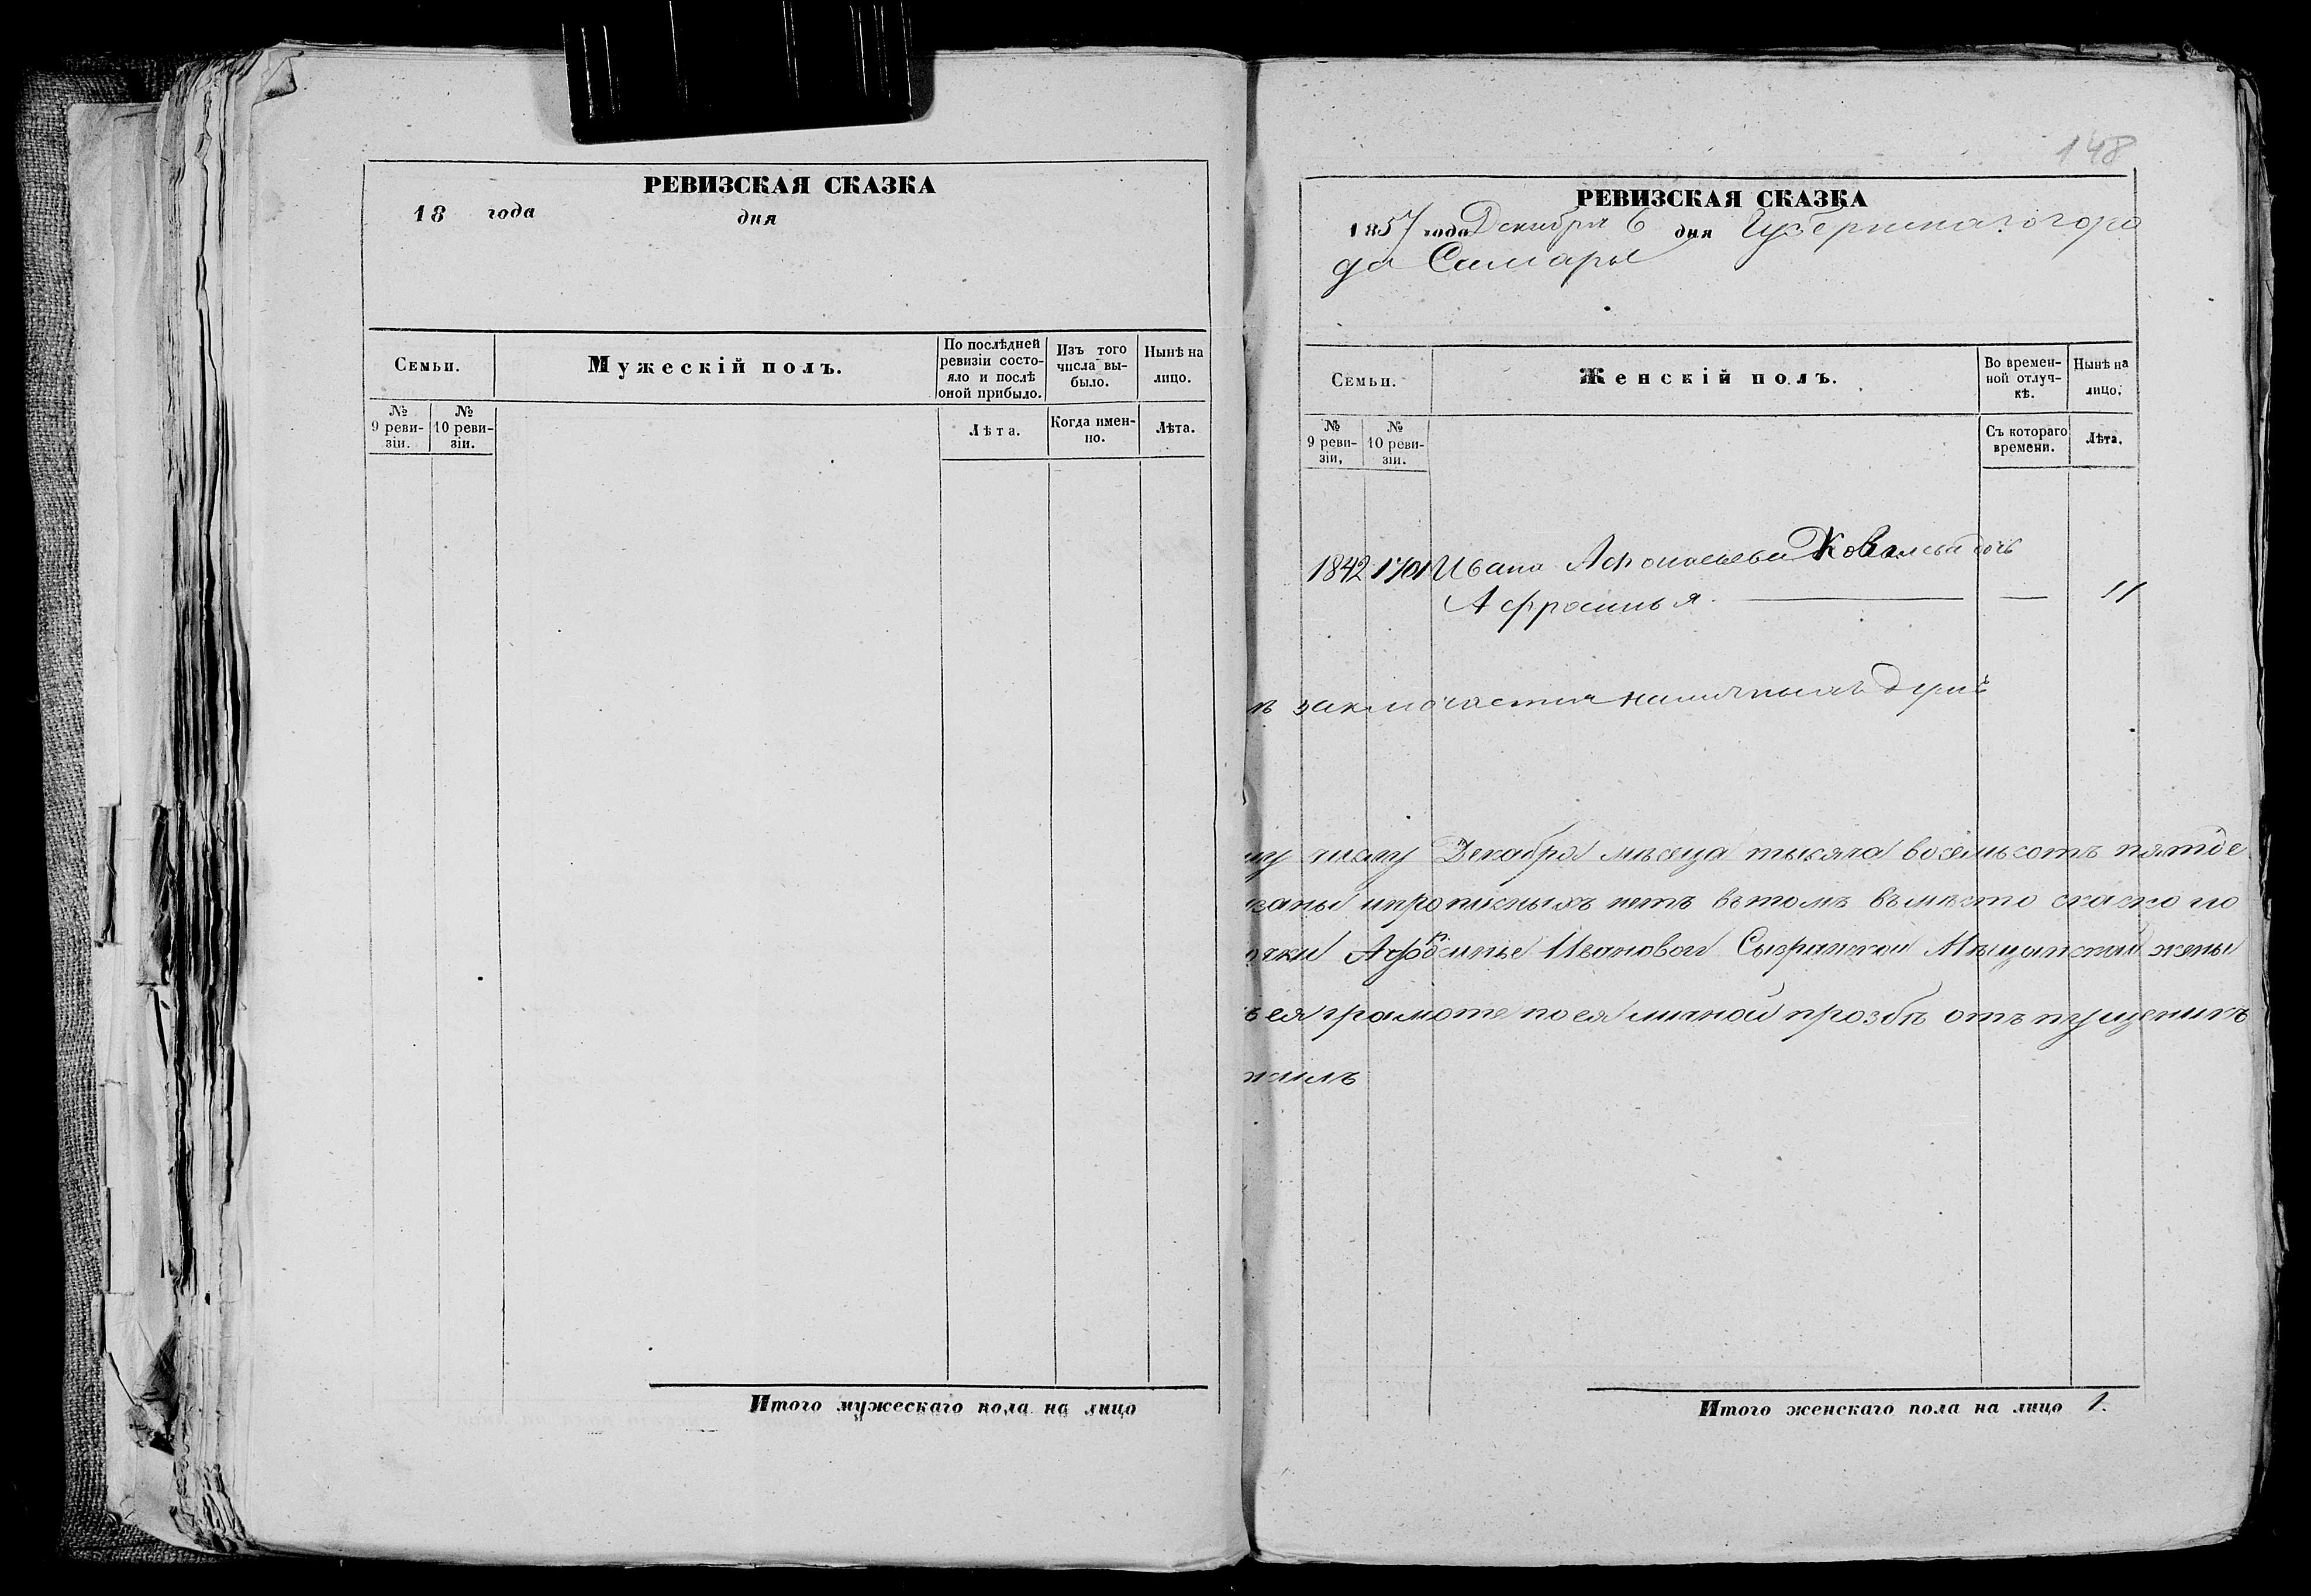 РЕВИЗСКАЯ СКАЗКА
18 года дня
Семьи.
Мужескій полъ.
По послѣдней ревизіи состо-
яло и послѣ
оной прибыло.
Изъ того
числа вы-
было.
Нынѣ на
лицо.
№
9 реви-
зіи.
№
10 реви-
зіи.
Лѣта.
Когда имен-
но.
Лѣта.
Итого мужескаго пола на лицо
148
РЕВИЗСКАЯ СКАЗКА
1857 года Декабря 6 дня Губернскаго горо
да Самары
Семьи.
Женскій полъ.
Во времен-
ной отлуч-
кѣ.
Нынѣ на
лицо.
№
9 реви-
зіи,
№
10 реви-
зіи.
Съ котораго
времени.
Лѣта.
1842 1701 Ивана Афонасьева дочь
Афросинья. — — 11
заключается наличныхъ душъ
му числу Декабря мѣсеца тысяча восемьсотъ пятьде
заны ипрописныхъ нетъ вътомъ въмѣсто
Афросинье Ивановой Сызранской Мѣщанской жены
ея грамоте поея личной прозбѣ
жилъ
Итого женскаго пола на лицо 1.